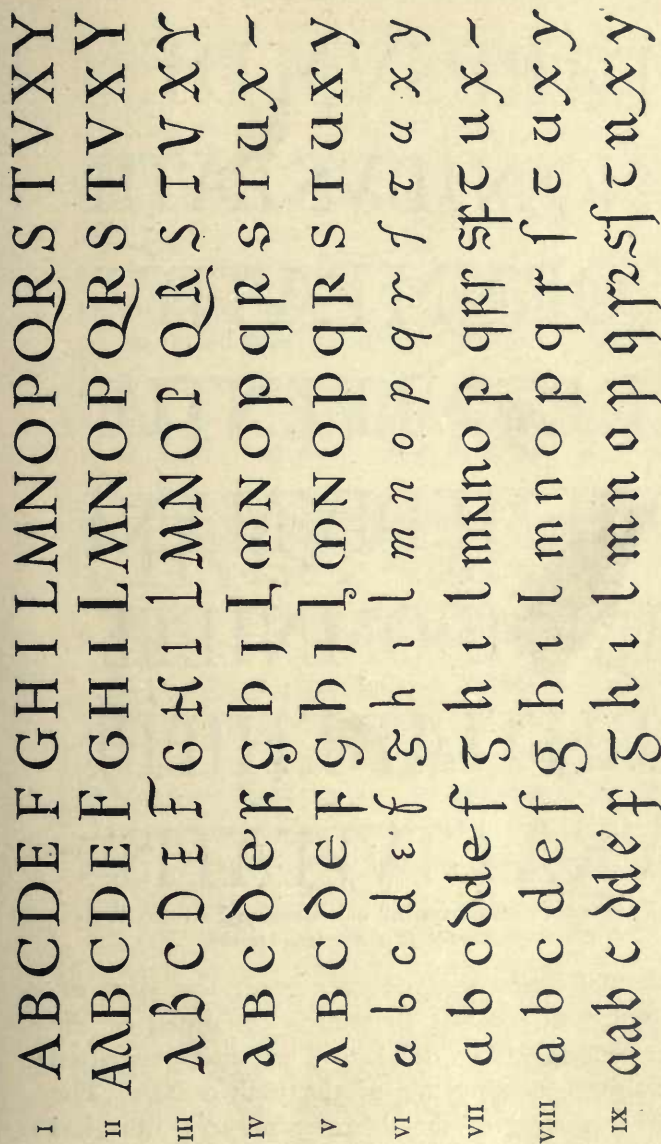 I A B C D E F G H I L M N O P Q R S T V X Y
II A λ B C D E F G H I L M N O P Q R S T V X Y
III λ B C D E F G H I L M N O P Q R S T V X Y
IV a B c ∂ e F g h I L m N o p q R s T u x –
V λ B C ∂ E F G h I L m N O p q R S T u X y
VI a b c d ε f ᵹ h ı l m n o p q r ſ τ u x y
VII a b c ∂ d e f ᵹ h ı l m N n o p q R r s ſ τ u x –
VIII a b c d e f g h ı l m n o p q r ſ τ u x y
IX a a b c ∂ d e f ᵹ h ı l m n o p q r ꝛ s ſ τ u x y